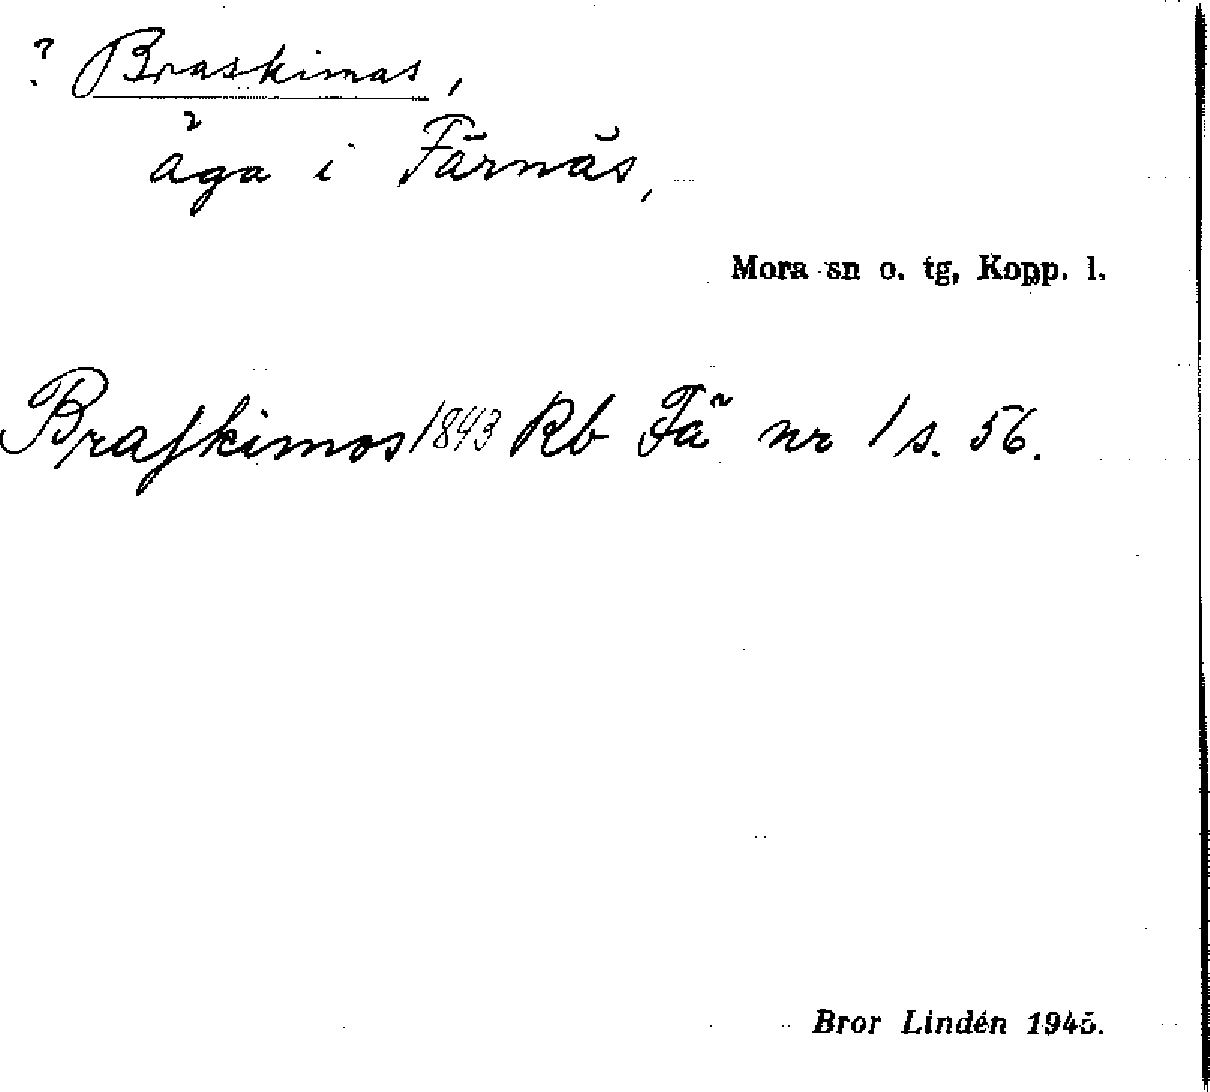 ? Braskimas,
äga i Färnäs,
Mora sn o. tg, Kopp. l.
Braſkimos 1843 Rb Fä nr 1 s. 56.
Bror Lindén 1945.